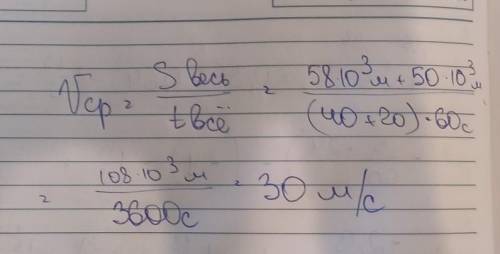 Vср = S весь / t всё = 58·10³м + 50·10³м / (40+20)·60с
= 108·10³м / 3600с = 30 м/с